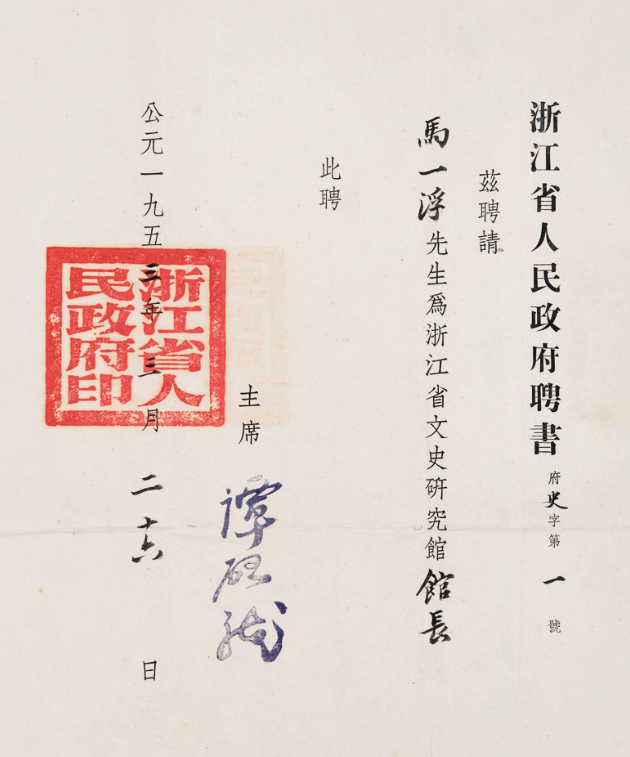 浙江省人民政府聘書 府史字第一號
茲聘請
馬一浮先生爲浙江省文史研究館館長
此聘
主席 譚啟龍
公元一九五三年三月二十六日
浙江省人
民政府印